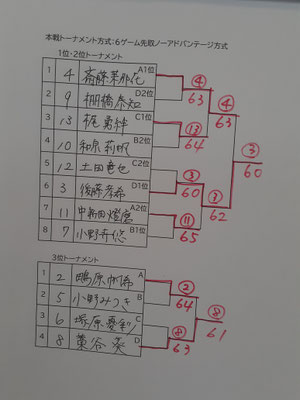 本戦トーナメント方式:6ゲーム先取ノーアドバンテージ方式
1位・2位トーナメント
1 4 斎藤菜那花 A1位
2 9 棚橋泰知 D2位
3 13 梶勇絆 C1位
4 10 和泉莉帆 B2位
5 12 土田竜也 C2位
6 3 後藤孝希 D1位
7 11 A2位
8 7 B1位
④
63
⑬
64
③
60
⑪
65
④
63
③
62
③
60
3位トーナメント
1 2 鴫原帆希 A
2 5 小野みつき B
3 6 塚原 C
4 8 葉谷葵 D
②
64
⑧
63
⑧
61